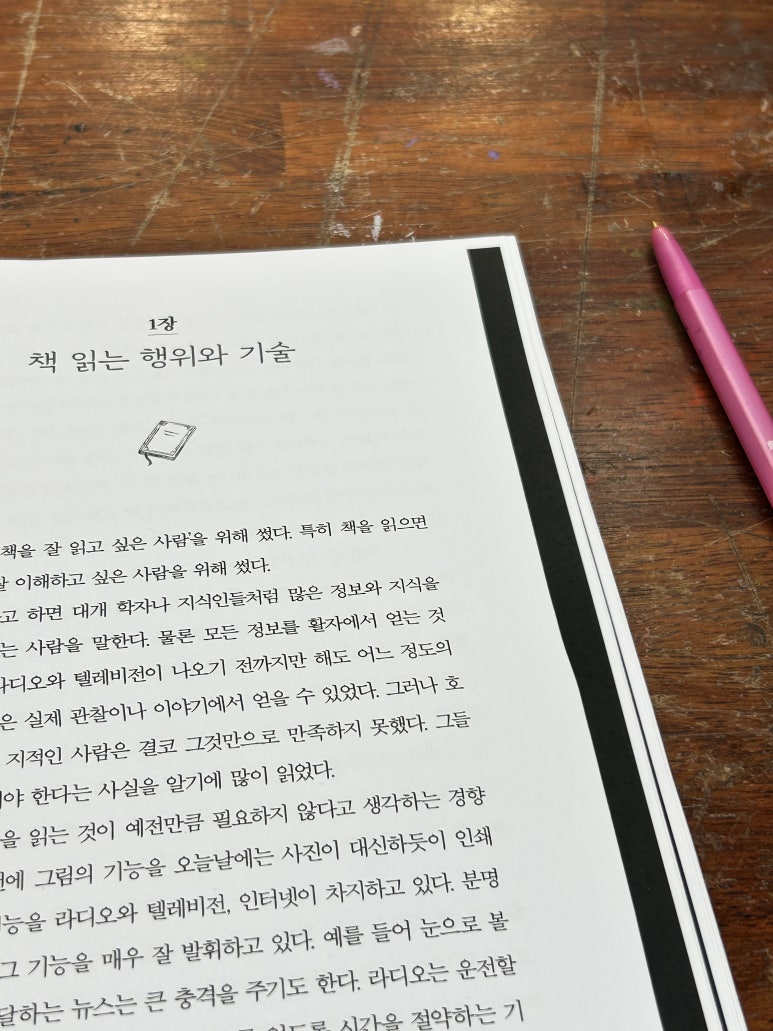 1장
책 읽는 행위와 기술
책을 잘 읽고 싶은 사람'을 위해 썼다. 특히 책을 읽으면
잘 이해하고 싶은 사람을 위해 썼다.
고 하면 대개 학자나 지식인들처럼 많은 정보와 지식을
는 사람을 말한다. 물론 모든 정보를 활자에서 얻는 것
라디오와 텔레비전이 나오기 전까지만 해도 어느 정도의
은 실제 관찰이나 이야기에서 얻을 수 있었다. 그러나 호
지적인 사람은 결코 그것만으로 만족하지 못했다. 그들
야 한다는 사실을 알기에 많이 읽었다.
을 읽는 것이 예전만큼 필요하지 않다고 생각하는 경향
에 그림의 기능을 오늘날에는 사진이 대신하듯이 인쇄
능을 라디오와 텔레비전, 인터넷이 차지하고 있다. 분명
그 기능을 매우 잘 발휘하고 있다. 예를 들어 눈으로 볼
달하는 뉴스는 큰 충격을 주기도 한다. 라디오는 운전할
시간을 절약하는 기